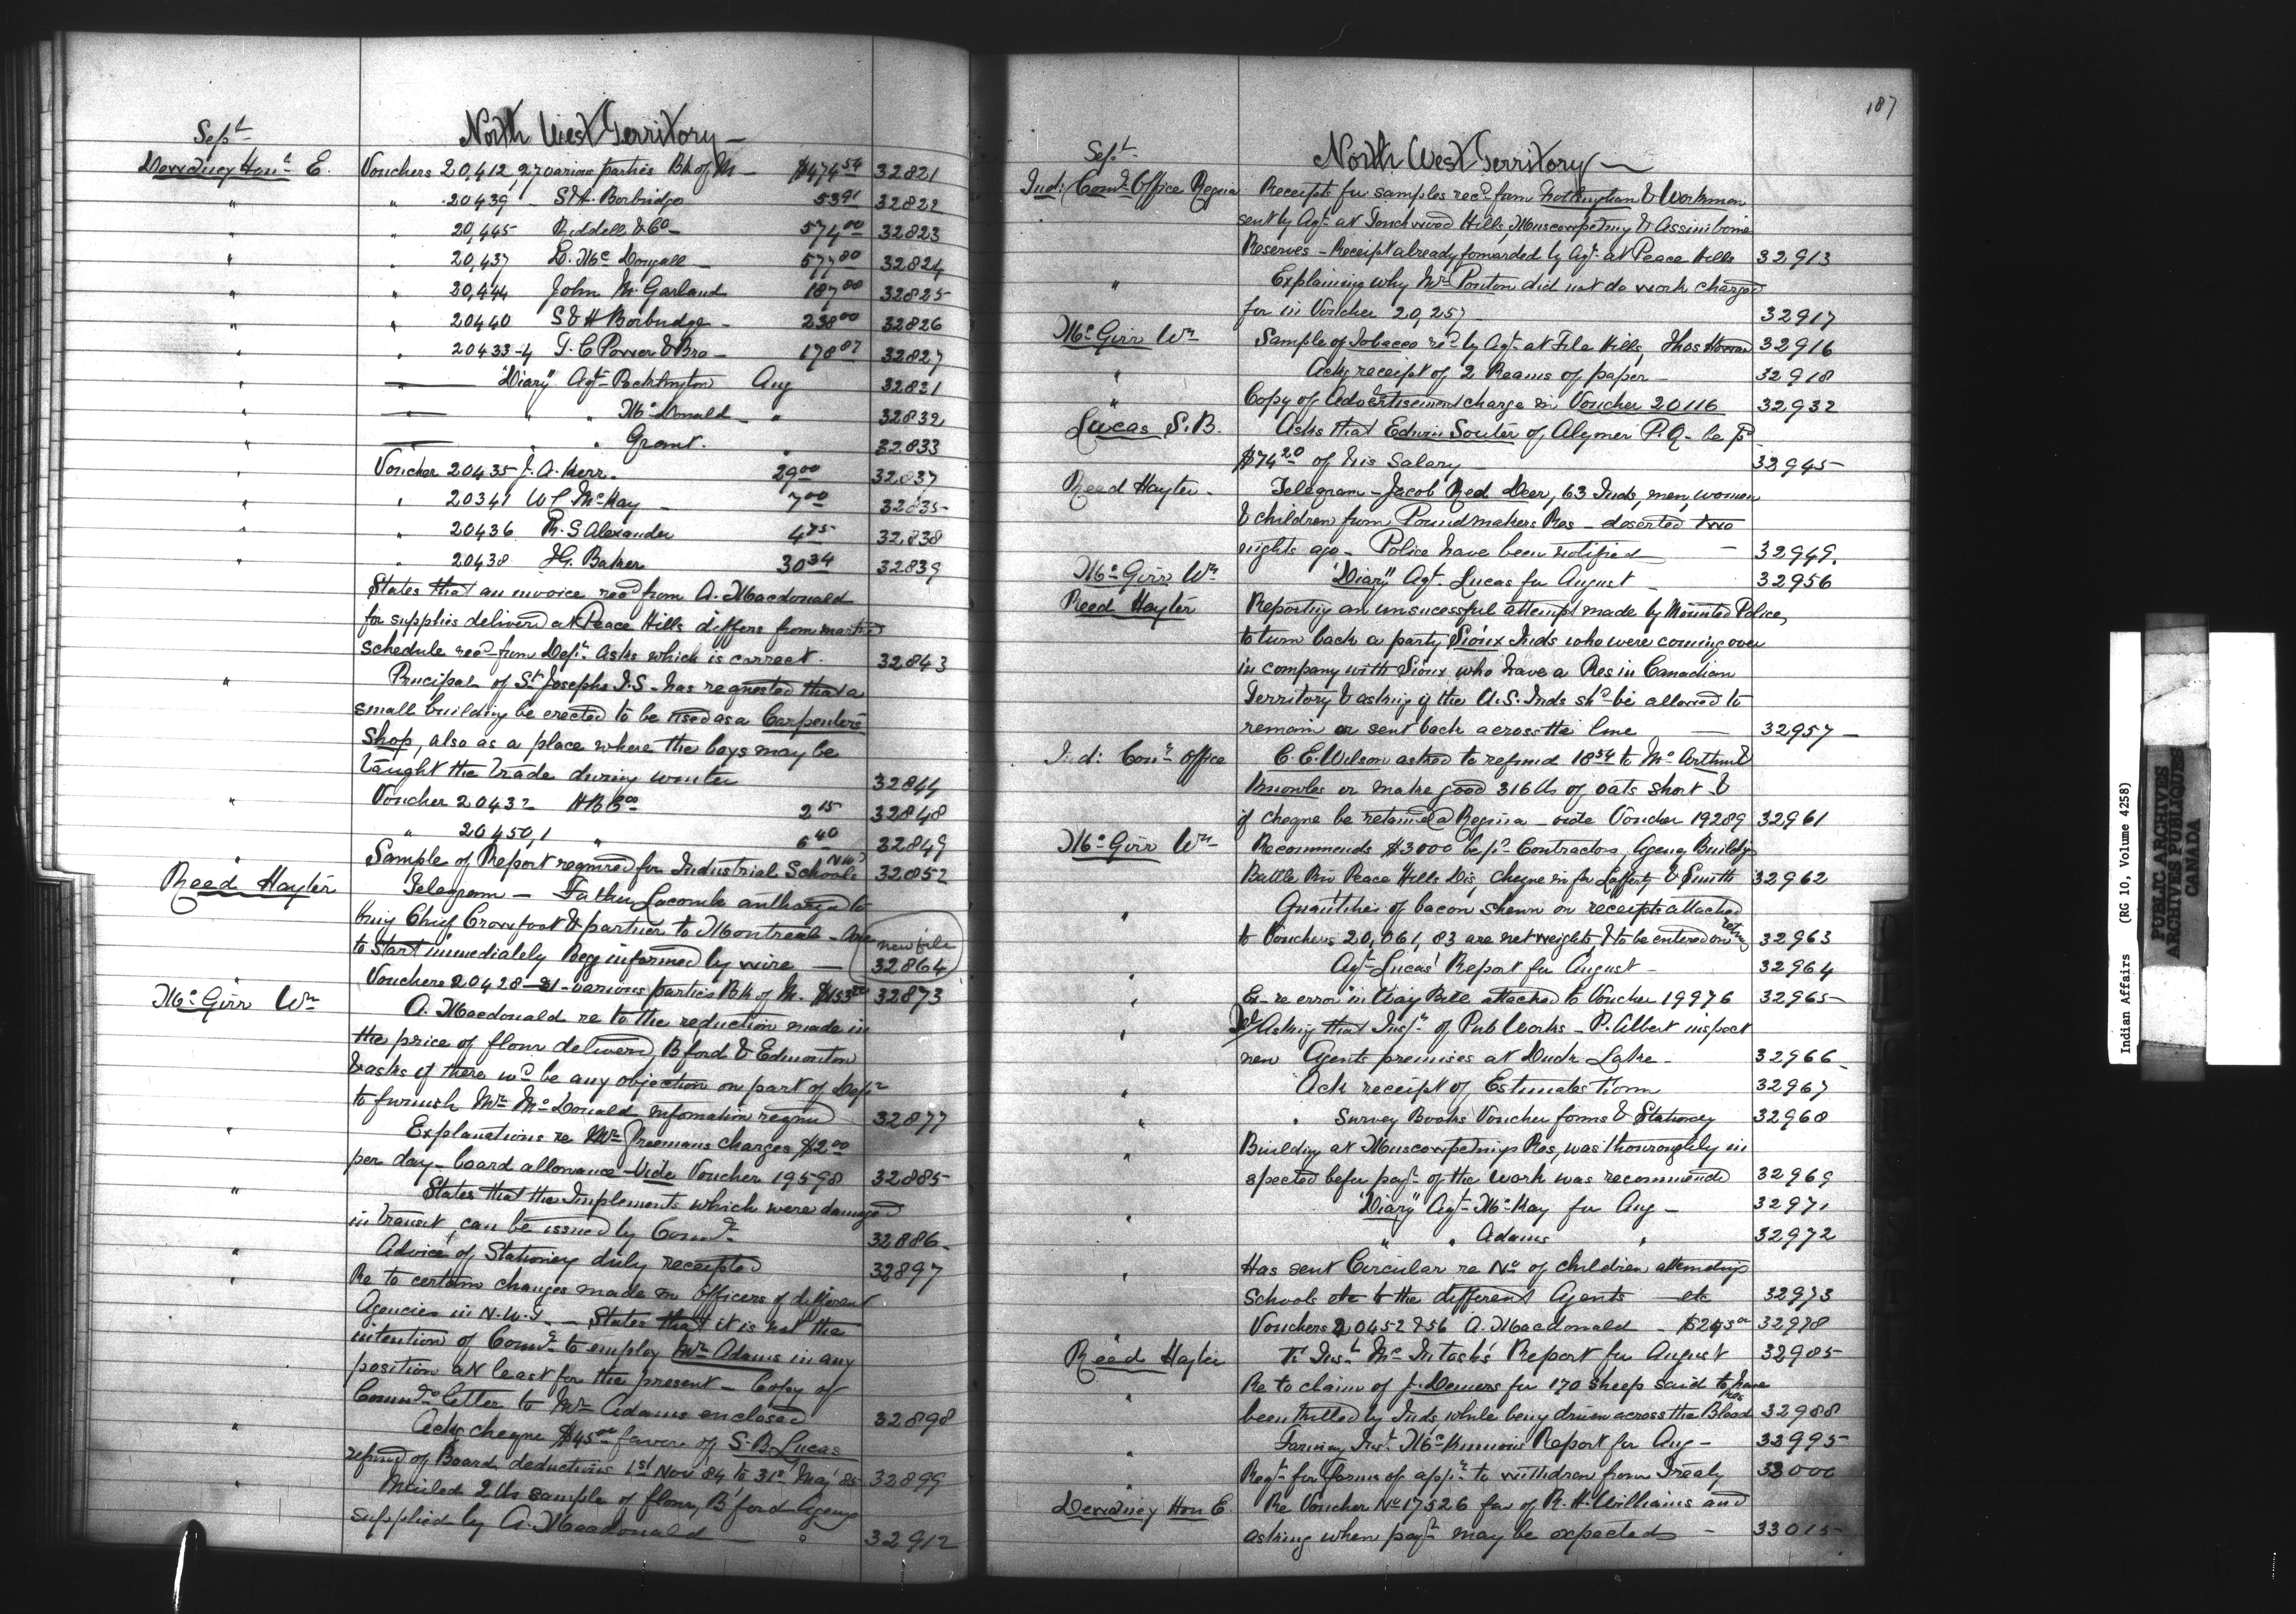 Sept
North West Territory
Dewdney Hon. E. Vouchers 20,412, 27 various parties Bk of M $474 54 32821
" " 20439 S & H. Borbridge 53 91 32822
" " 20,445 Riddell & Co 574 00 32823
" " 20,437 D. McDougall 577 80 32824
" " 20,444 John M. Garland 187 88 32825
" " 20440 S & H Borbridge 238 00 32826
" " 20433-4 T. C Power & Bro 178 87 32827
" "Diary" Agt Pocklington Aug 32831
" " " McDonald " 32832
" " " Grant " 32833
" Voucher 20435 J. A. Kerr. 29 00 32837
" " 20341 W L McKay 7 00 32835
" " 20436 R. S Alexander 4 75 32838
" " 20438 I G. Baker 30 34 32839
States that an invoice recd from A. Macdonald
for supplies delivered at Peace Hills differs from
schedule recd from Dept. Asks which is correct. 32843
" Principal of St Josephs I.S. has requested that a
small building be erected to be used as a Carpenters
Shop, also as a place where the boys may be
taught the trade during winter 32844
" Voucher 20432 H B Co 2 15 32848
" " 20450,1 " 6 40 32849
" Sample of Report required for Industrial Schools N W T 32852
Reed Hayter Telegram — Father Lacombe authorized to
bring Chief Crowfoot & partner to Montreal - Are new file
to start immediately Beg informed by wire — 32864
" Vouchers 20428-31 - various parties Bk of M. 32873
McGirr Wm A. Macdonald re to the reduction made in
the price of flour delivered, B'ford & Edmonton
& asks if there wd be any objection on part of Dept
to furnish Mr McDonald information 32877
" Explanations re Mr Freemans charges $2 00
per day - board allowance - Vide Voucher 19598 32885
" States that the Implements which were damaged
in transit, can be issued by Comr. 32886
" Advice of Stationery duly receipted 32897
" Re to certain changes made in officers of different
Agencies in N.W.T. — States that it is not the
intention of Comr. to employ Mr Adams in any
position at least for the present — Copy of
Comrs letter to Mr Adams enclosed 32898
" Acks cheque $45 00 favor of S. B. Lucas
refund of Board deductions 1st Nov '84 to 31st May '85 32899
" Mailed 2 lb sample of flour, B'ford Agency
supplied by A. Macdonald — 32912
187
Sept.
North West Territory
Ind: Comr. Office Regina Receipts for samples recd from Nottingham & Workman
sent by Agt. at Touchwood Hills, Muscowpetung & Assiniboine
Reserves - Receipt already forwarded by Agt. at Peace Hills 32913
" Explaining why Mr Ponton did not do work charged
for in Voucher 20,257 32917
McGirr Wm Sample of Tobacco recd by Agt. at File Hills, Thos 32916
" Acks receipt of 2 Reams of paper — 32918
" Copy of Advertisement charge in Voucher 20116 32932
Lucas S. B. Asks that Edwin Souter of Alymer P.Q. be pd
$74 20 of his Salary 32945
Reed Hayter Telegram - Jacob Red Deer, 63 Inds, men, women
& children from Poundmakers Res — deserted two
nights ago - Police have been notified — 32949.
McGirr Wm "Diary" Agt. Lucas for August 32956
Reed Hayter Reporting an unsucessful attempt made by Mounted Police,
to turn back a party Sioux Inds who were coming over
in company with Sioux who have a Res in Canadian
Territory & asking if the A. S. Inds shd be allowed to
remain or sent back across the line — 32957
Ind: Comr. Office C. E. Wilson asked to refund 18 54 to McArthur &
Knowles or make good 316 lbs of oats short &
if cheque be retained a Regina vide Voucher 19289 32961
McGirr Wm Recommends $3000 be pd Contractors, Agency Buildgs
Battle Riv Peace Hills Dis, cheque in fr Lafferty & Smith 32962
" Quantities of bacon shewn on receipts attached
to Vouchers 20,061, 83 are net weights, & to be entered on return 32963
" Agt Lucas' Report for August — 32964
" Ex- re error in Way Bill attached to Voucher 19976 32965
" Asking that Insp. of Pub Works - P. Albert inspect
new Agents premises at Duck Lake. 32966
" Ack receipt of Estimates Form 32967
" " Survey Books Voucher forms & Stationery 32968
" Building at Muscowpetungs Res, was thouroughly in
spected befor payt. of the work was recommended 32969
" "Diary" Agt. McKay for Aug — 32971
" " " Adams " 32972
" Has sent Circular re No of children attending
Schools etc to the different Agents — etc 32973
" Vouchers 20452 & 56 A. Macdonald 32978
Reed Hayter Insr McIntosh's Report for August 32985
" Re to claim of J. Demers for 170 sheep said to have
been killed by Inds, while being driven across the Blood Res 32988
" Farming Inst. McKinnons Report for Aug — 32995
" Reqt. for forms of appn to withdraw from Treaty 33000
Dewdney Hon E. Re Voucher No 17526 fav of R. H. Williams and
asking when payt may be expected — 33015
Indian Affairs (RG 10, Volume 4258)
PUBLIC ARCHIVES
ARCHIVES PUBLIQUES
CANADA